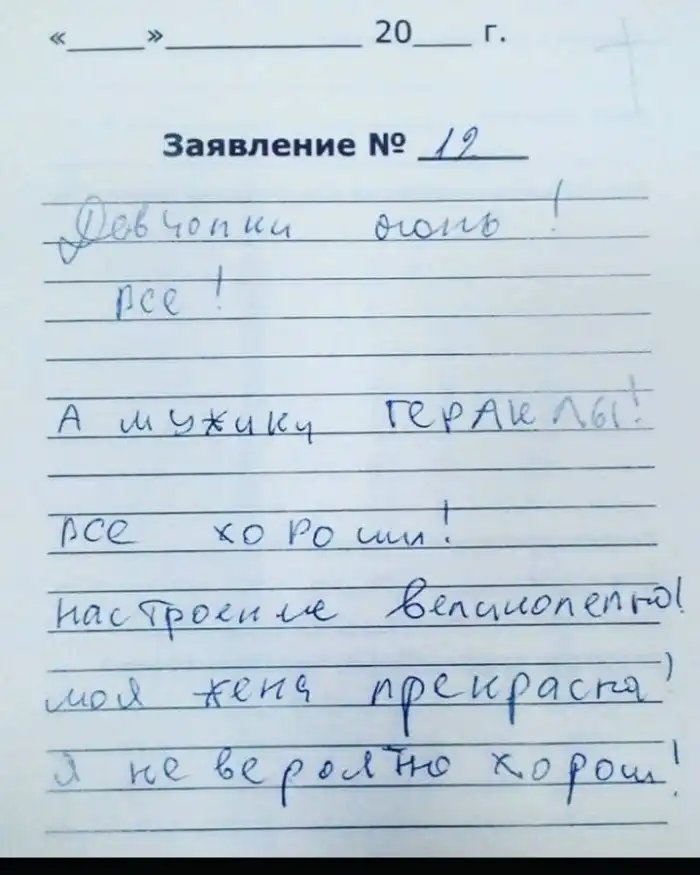 «____»__________ 20___ г.
Заявление № 12
Девчонки огонь!
все!
А мужики ГЕРАКЛЫ!
все хороши!
настроение великолепно!
моя жена прекрасна!
Я не вероятно хорош!